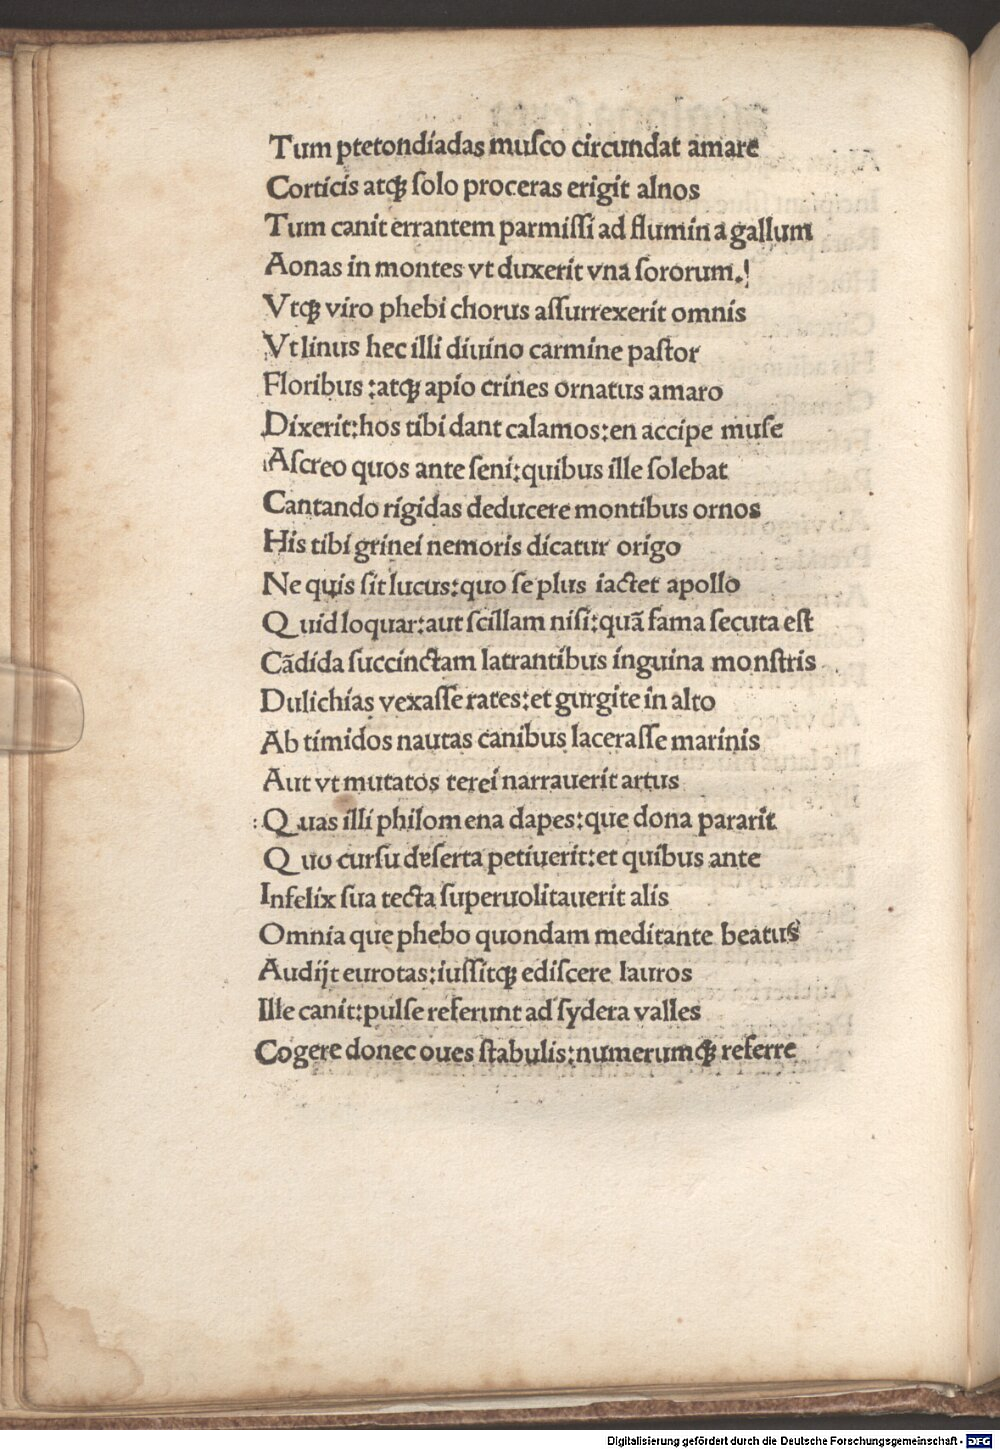 Tum ptetondiadas muſco circundat amare
Corticis atqȝ ſolo proceras erigit alnos
Tum canit errantem parmiſſi ad flumina gallum
Aonas in montes vt duxerit vna ſororum.
Vtqȝ viro phebi chorus aſſurrexerit omnis
Vt linus hec illi diuino carmine paſtor
Floribus :atqȝ apio crines ornatus amaro
Dixerit:hos tibi dant calamos:en accipe muſe
Aſcreo quos ante ſeni:quibus ille ſolebat
Cantando rigidas deducere montibus ornos
His tibi grinei nemoris dicatur origo
Ne quis ſit lucus:quo ſe plus iactet apollo
Quid loquar:aut ſcillam niſi:quā fama ſecuta eſt
Cādida ſuccinctam latrantibus inguina monſtris
Dulichias vexaſſe rates:et gurgite in alto
Ab timidos nautas canibus laceraſſe marinis
Aut vt mutatos terei narrauerit artus
Quas illi philomena dapes:que dona pararit
Quo curſu deſerta petiuerit:et quibus ante
Infelix ſua tecta ſuperuolitauerit alis
Omnia que phebo quondam meditante beatus
Audijt eurotas:iuſſitqȝ ediſcere lauros
Ille canit:pulſe referunt ad ſydera valles
Cogere donec oues ſtabulis:numerumqȝ referre
Digitalisierung gefördert durch die Deutsche Forschungsgemeinschaft - DFG